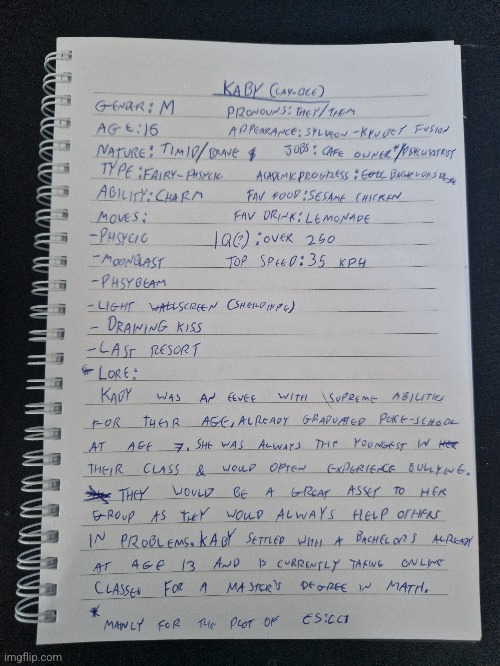 KABY (CAY-BEE)
GENDER: M PRONOUNS: THEY/THEM
AGE: 15 APPEARANCE: SYLVEON - KYUBEY FUSION
NATURE: TIMID/BRAVE JOBS: CAFE OWNER*/PSYCHIATRIST
TYPE: FAIRY-PHSYCIC ACADEMIC PROGRESS: BACHELORS
ABILITY: CHARM FAV FOOD: SESAME CHICKEN
MOVES: FAV DRINK: LEMONADE
-PHSYCIC IQ(?): OVER 250
-MOONBLAST TOP SPEED: 35 KPH
-PHSYBEAM
-LIGHT SCREEN (SHEILDTYPE)
- DRAINING KISS
-LAST RESORT
* LORE:
KABY WAS AN EEVEE WITH SUPREME ABILITIES
FOR THEIR AGE, ALREADY GRADUATED POKE-SCHOOL
AT AGE 7. SHE WAS ALWAYS THE YOUNGEST IN HER
THEIR CLASS & WOULD OFTEN EXPERIENCE BULLYING.
THEY WOULD BE A GREAT ASSET TO HER
GROUP AS THEY WOULD ALWAYS HELP OTHERS
IN PROBLEMS. KABY SETTLED WITH A BACHELORS ALREADY
AT AGE 13 AND IS CURRENTLY TAKING ONLINE
CLASSES FOR A MASTER'S DEGREE IN MATH.
* MAINLY FOR THE PLOT OF
imgflip.com